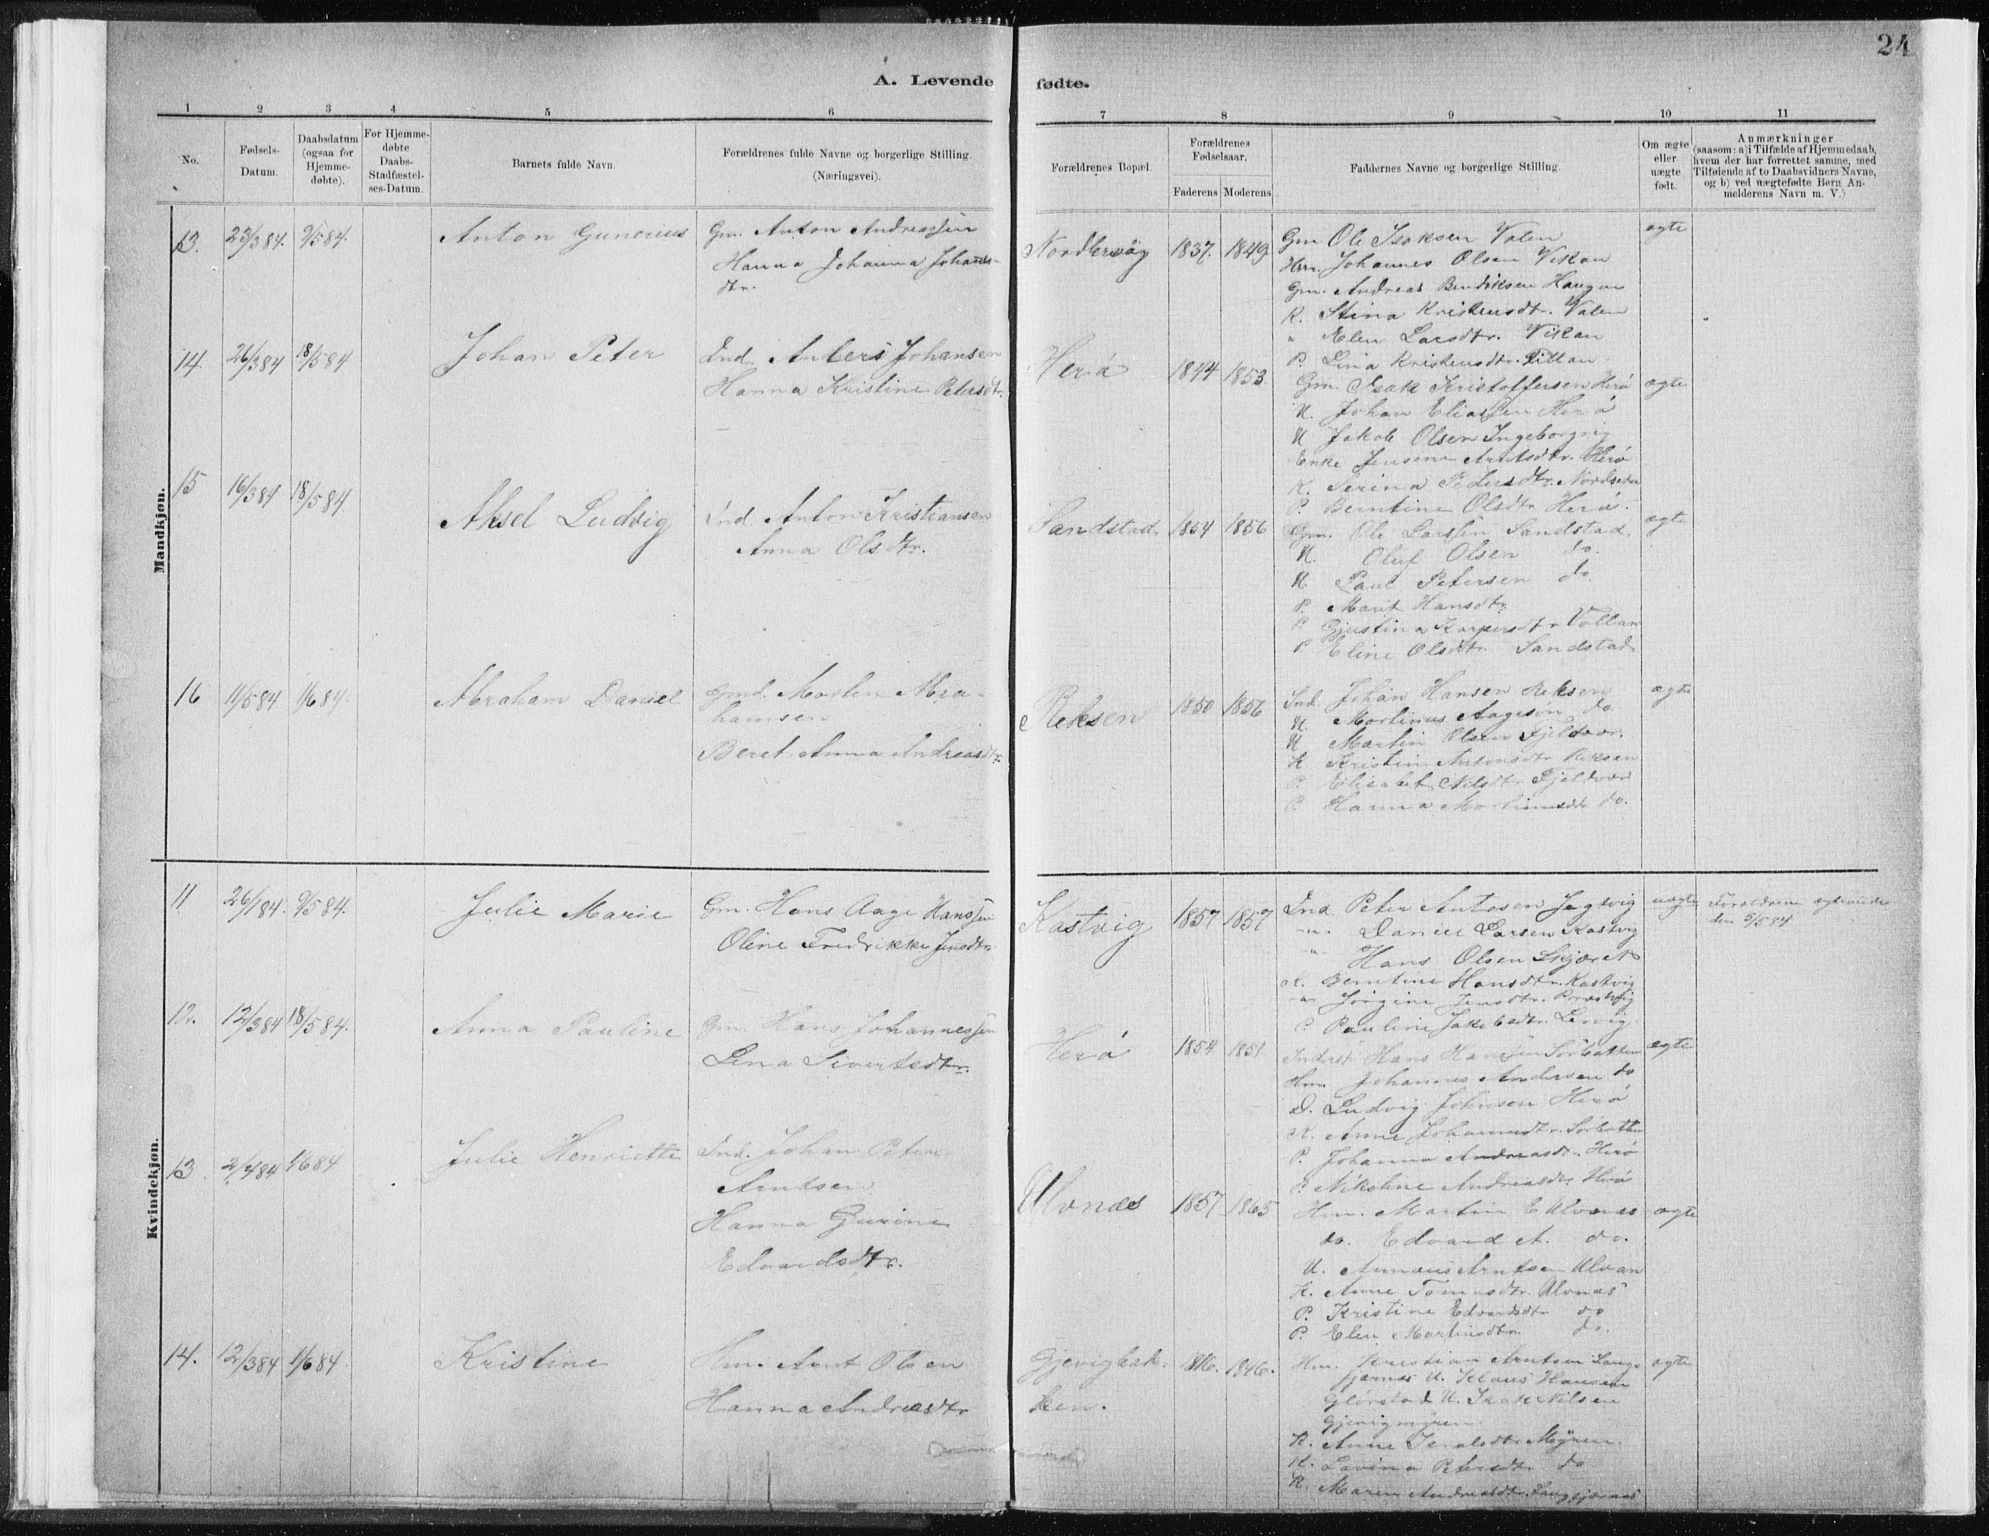 24
A. Levende fødte.
1 2 3 4 5 6 7 8 9 10 11
No.
Fødsels-Datum.
Daabsdatum (ogsaa for Hjemme-døbte).
For Hjemme-døbte Daabs-Stadfæstel-ses-Datum.
Barnets fulde Navn.
Forældrenes fulde Navne og borgerlige Stilling.
(Næringsvei).
Forældrenes Bopæl.
Forældrenes Fødselsaar.
Faderens Moderens
Faddernes Navne og borgerlige Stilling.
Om ægte eller uægte født.
Anmærkninger
(saasom: a) i Tilfælde af Hjemmedaab,
hvem der har forrettet samme, med
Tilføiende af to Daabsvidners Navne,
og b) ved uægtefødte Børn An-
melderens Navn m. V.)
Mandkjøn.
13. 23/3 84. 9/5 84. Anton Gunerius
Gm. Anton Andreassen
Hanna Johanna Johans-
dtr.
1837. 1849.
Gm. Ole Isaksen Valen
Hm. Johannes Olsen Vikan
Gm. Andreas Bendiksen Haugen
K. Stina Kristensdtr. Valen
" Elen Larsdtr. Vikan
P. Lina Kristensdtr.
ægte
14. 26/3 84 18/5 84 Johan Peter
Ind. Anders Johansen
Hanna Kristine Petersdtr.
Herø 1844 1853.
Gm. Isak Kristoffersen Herø
U. Johan Eliassen Herø
U Jakob Olsen Ingeborgvig
Enke Jensine Arntsdtr. Herø
K. Serina Pedersdtr.
P. Berntine Olsdtr Herø.
ægte
15 16/3 84 18/5 84 Aksel Ludvig
Ind. Anton Kristiansen
Anna Olsdtr.
Sandstad. 1854 1856
Gm. Ole Larssen Sandstad.
U. Oluf Olsen do.
U. Paul Petersen do
P. Marit Hansdtr.
P. Gjestina Kaspersdtr Vollan
P. Eline Olsdtr. Sandstad
ægte
16 11/5 84 1/6 84. Abraham Daniel
Gmd. Morten Abra-
hamsen
Beret Anna Andreasdtr.
Reksen 1850 1856
Ind. Johan Hansen Reksen
U. Martinus Aagesøn do.
U Martin Olsen Fjeldvær.
K Kristin Antonsdtr. Reksen
P. Elisabet Nilsdtr Fjeldvær
P. Hanna Martinusdtr do.
ægte
Kvindekjøn.
11 26/1 84. 9/5 84. Julie Marie
Gm. Hans Aage Hanssen
Oline Fredrikke Jensdtr.
Kastvig 1857 1857
Ind. Peter Antosen Jegtvig
-"- Daniel Larsen Kastvig
" Hans Olsen Skjæret
K. Berntine Hansdtr. Kastvig
-"- Jørgine Jensdtr.
P. Pauline Jakobsdtr. Lervig.
uægte
Forældrene ægteviede
den 5/5 84
12. 12/3 84 18/5 84. Anna Pauline
Gm. Hans Johannessen
Lena Sivertsdtr.
Herø 1854 1851
Inderst Hans Hanssen Sørbotten
Hm. Johannes Andersen do
D. Ludvig Johnsen Herø
K. Anne Johannesdtr. Sørbotten
P. Johanna Andreasdtr. Herø
P. Nikoline Andreasdtr. Herø
ægte
13. 2/4 84 1/6 84 Julie Henriette
Ind. Johan Peter
Arntsen
Hanna Gurine
Edvardsdtr.
Ulvnæs 1857 1865
Hm. Martin E Ulvnæs
do. Edvard A. do.
U. Annæus Arntsen Ulvan
K. Anne Tomasdtr. Ulvnæs
P. Kristine Edvardsdtr do
P. Elen Martinsdtr. do.
ægte
14. 12/3 84 1/6 84. Kristine
Hm. Arnt Olsen
Hanna Andreasdtr
Gjevigbak-
ken.
1846.
Hm. Kristian Arntsen Lang-
fjærnes U. Klaus Hansen
Glørstad U. Isak Nilsen
Gjevigmyren.
K. Anne Myren.
K. Lovina Petersdtr do
K. Maren Andreasdtr.
ægte